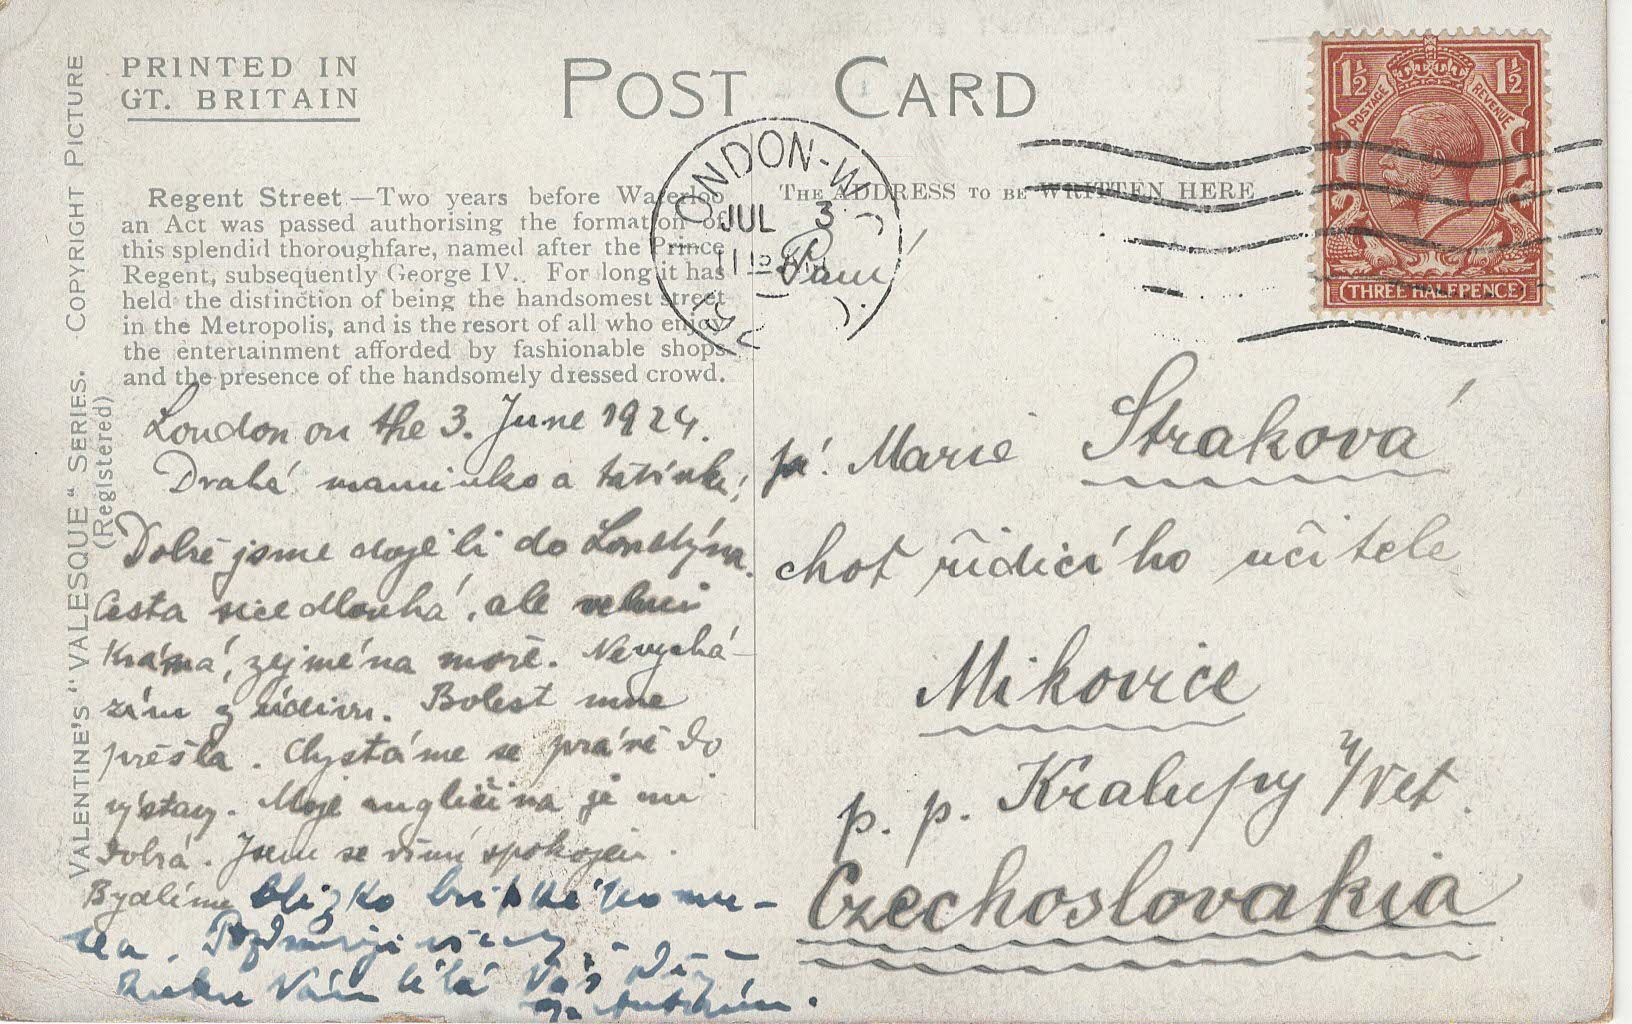 PRINTED IN
GT. BRITAIN
POST CARD
VALENTINE'S "VALESQUE" SERIES. COPYRIGHT PICTURE
(Registered)
Regent Street.—Two years before Waterloo
an Act was passed authorising the formation of
this splendid thoroughfare, named after the Prince
Regent, subsequently George IV.. For long it has
held the distinction of being the handsomest street
in the Metropolis, and is the resort of all who enjoy
the entertainment afforded by fashionable shops
and the presence of the handsomely dressed crowd.
THE ADDRESS TO BE WRITTEN HERE
LONDON-W
JUL 3
11
1½ 1½
POSTAGE REVENUE
THREE HALFPENCE
London on the 3. June 1924.
Drahá maminko a tatínku;
Dobře jsme dojeli do Londýna.
Cesta sice dlouhá, ale velmi
krásná, zejména moře. Nevychá-
zím z údivu. Bolest mne
přešla. Chystáme se právě do
výstavy. Moje angličina je mi
dobrá. Jsem se vším spokojen.
Bydlíme blízko britského mu-
zea. Pozdravuji všechny,
Ruku Vám líbá Váš
Paní
Marie Straková
choť řídícího učitele
Mikovice
p. p. Kralupy n/Vlt.
Czechoslovakia